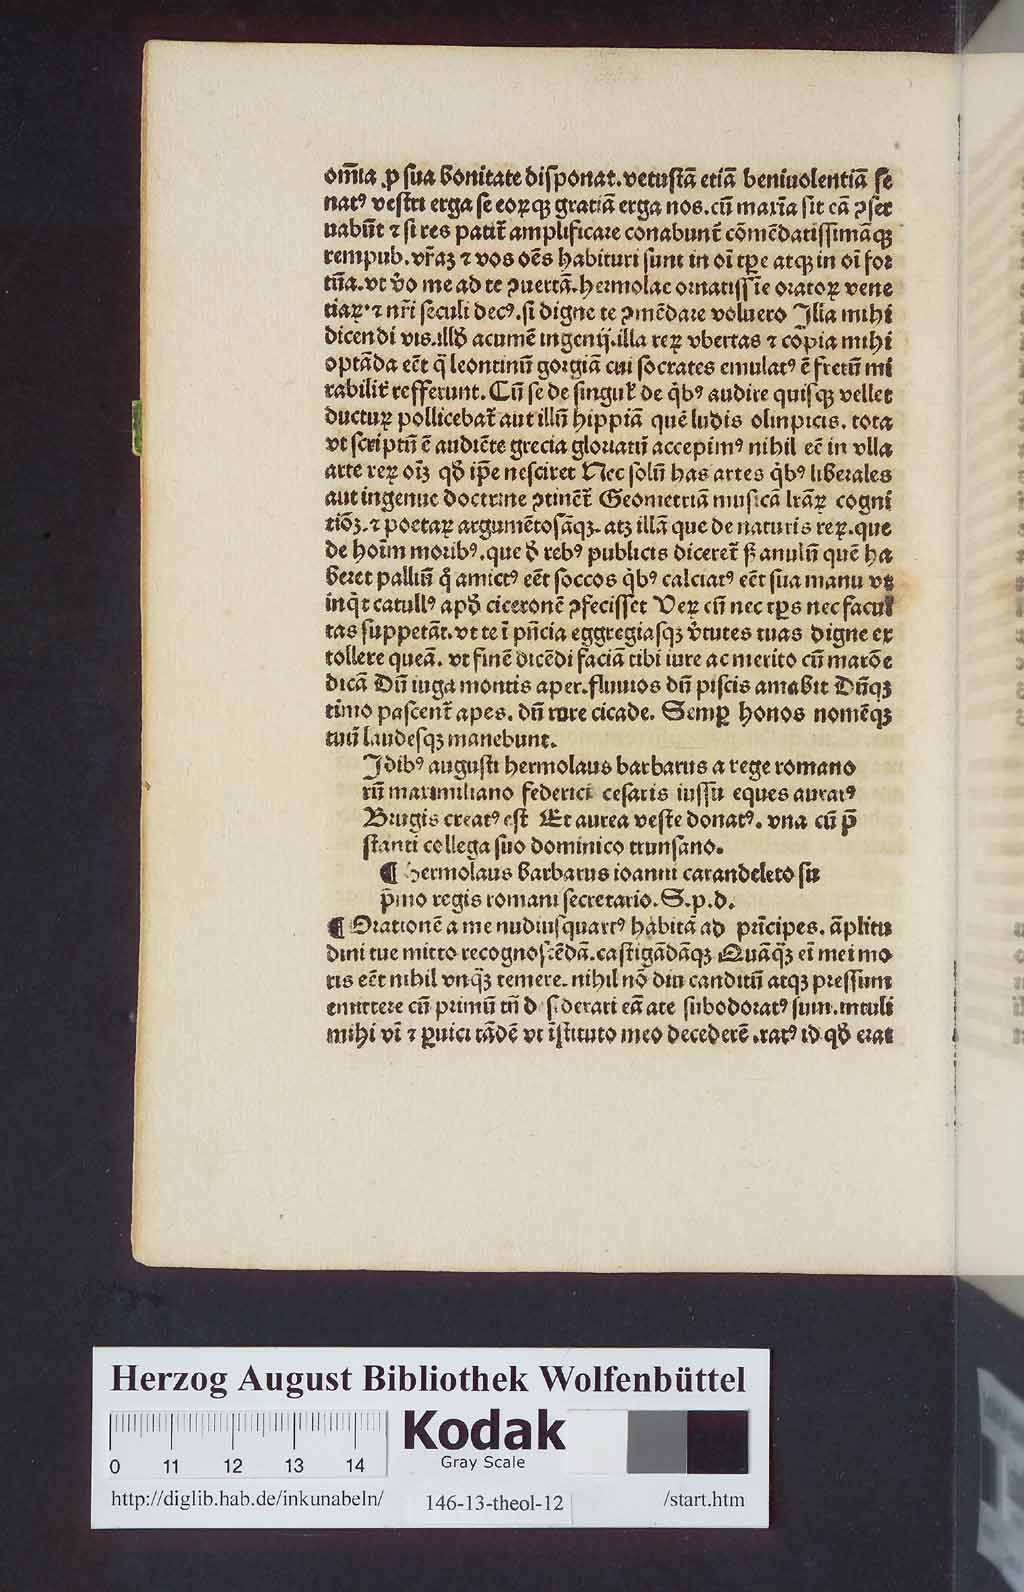 om̄ia ꝓ sua bonitate disponat. vetustā etiā beniuolentiā se
natꝰ vestri erga se eorūqꝫ gratiā erga nos. cū maxīa sit eā ꝯser
uabūt ⁊ si res patit̄ amplificare conabunt̄ cōmēdatissimāqꝫ
rempub. vr̄aꝫ ⁊ vos oēs habituri sunt in oī tꝑe atqꝫ in oī for
tūa. vt v̄o me ad te ꝯuertā. hermolae ornatissīe oratoꝝ vene
tiaꝝ ⁊ nr̄i seculi decꝰ. si digne te ꝯmēdare voluero Illa mihi
dicendi vis. illđ acumē ingenij. illa reꝝ vbertas ⁊ copia mihi
optāda eēt q̄ leontinū gorgiā cui socrates emulatꝰ ē fretū mi
rabilit̄ refferunt. Cū se de singul̄ de q̄bꝰ audire quisqꝫ vellet
ductuꝝ pollicebat̄ aut illū hippiā quē ludis olinpicis. tota
vt scriptū ē audiēte grecia gloriatū accepimꝰ nihil eē in vlla
arte reꝝ oīꝫ qđ ip̄e nesciret Nec solū has artes q̄bꝰ liberales
aut ingenue doctrine ꝯtinēt̄ Geometriā musicā lr̄aꝝ cogni
tiōꝫ. ⁊ poetaꝝ argumētosāqꝫ. atqꝫ illā que de naturis reꝝ. que
de hoīm moribꝰ. que đ rebꝰ publicis diceret̄ sꝫ anulū quē ha
beret palliū q̊ amictꝰ eēt soccos q̄bꝰ calciatꝰ eēt sua manu vt
inq̄t catullꝰ apđ ciceronē ꝯfecisset Veꝝ cū nec tꝑs nec facul
tas suppetāt. vt te ī pn̄cia eggregiasqꝫ v̄tutes tuas digne ex
tollere queā. vt finē dicēdi faciā tibi iure ac merito cū marōe
dicā Dū iuga montis aper. fluuios dū piscis amabit Dūqꝫ
timo pascent̄ apes. dū rore cicade. Semꝑ honos nomēqꝫ
tuū laudesqꝫ manebunt.
Idibꝰ augusti hermolaus barbarus a rege romano
rū maximiliano federici cesaris iussu eques auratꝰ
Brugis creatꝰ est Et aurea veste donatꝰ. vna cū p̄
stanti collega suo dominico trunsano.
¶ hermolaus barbarus ioanni carandeleto su
p̄mo regis romani secretario. S. p. d.
¶ Orationē a me nudiusquartꝰ habitā ad prīcipes. āplitu
dini tue mitto recognoscēdā. castigādāqꝫ Quāq̄ꝫ eī mei mo
ris eēt nihil vnq̄ꝫ temere. nihil nō diu canditū atqꝫ pressum
emittere cū primū tn̄ desiderari eā a te subodoratꝰ sum. intuli
mihi vī ⁊ ꝑuici tādē vt īstituto meo decederē. ratꝰ id qđ erat
Herzog August Bibliothek Wolfenbüttel
0 11 12 13 14
Kodak
Gray Scale
http://diglib.hab.de/inkunabeln/ 146-13-theol-12 /start.htm